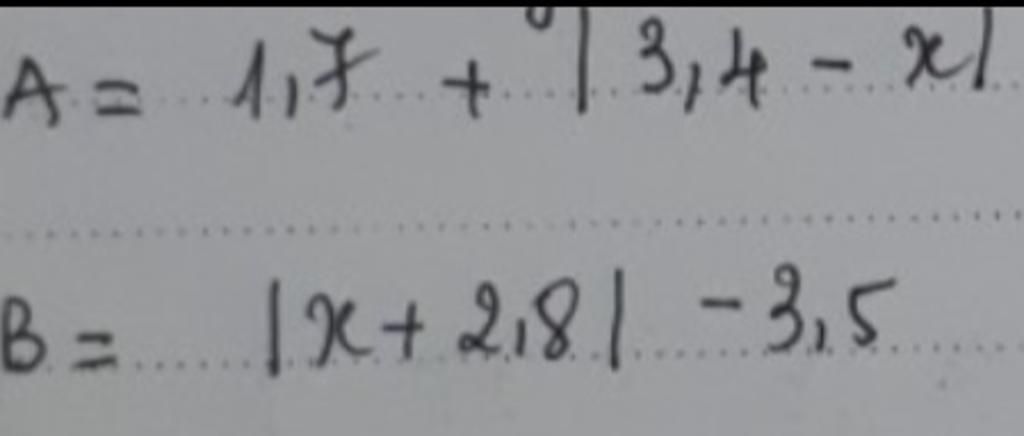 A = 1,7 + |3,4 - x|
B = |x + 2,8| - 3,5